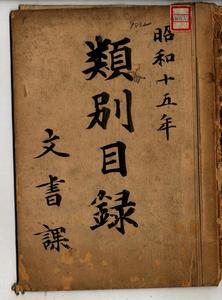 昭和十五年
類別目録
文書課